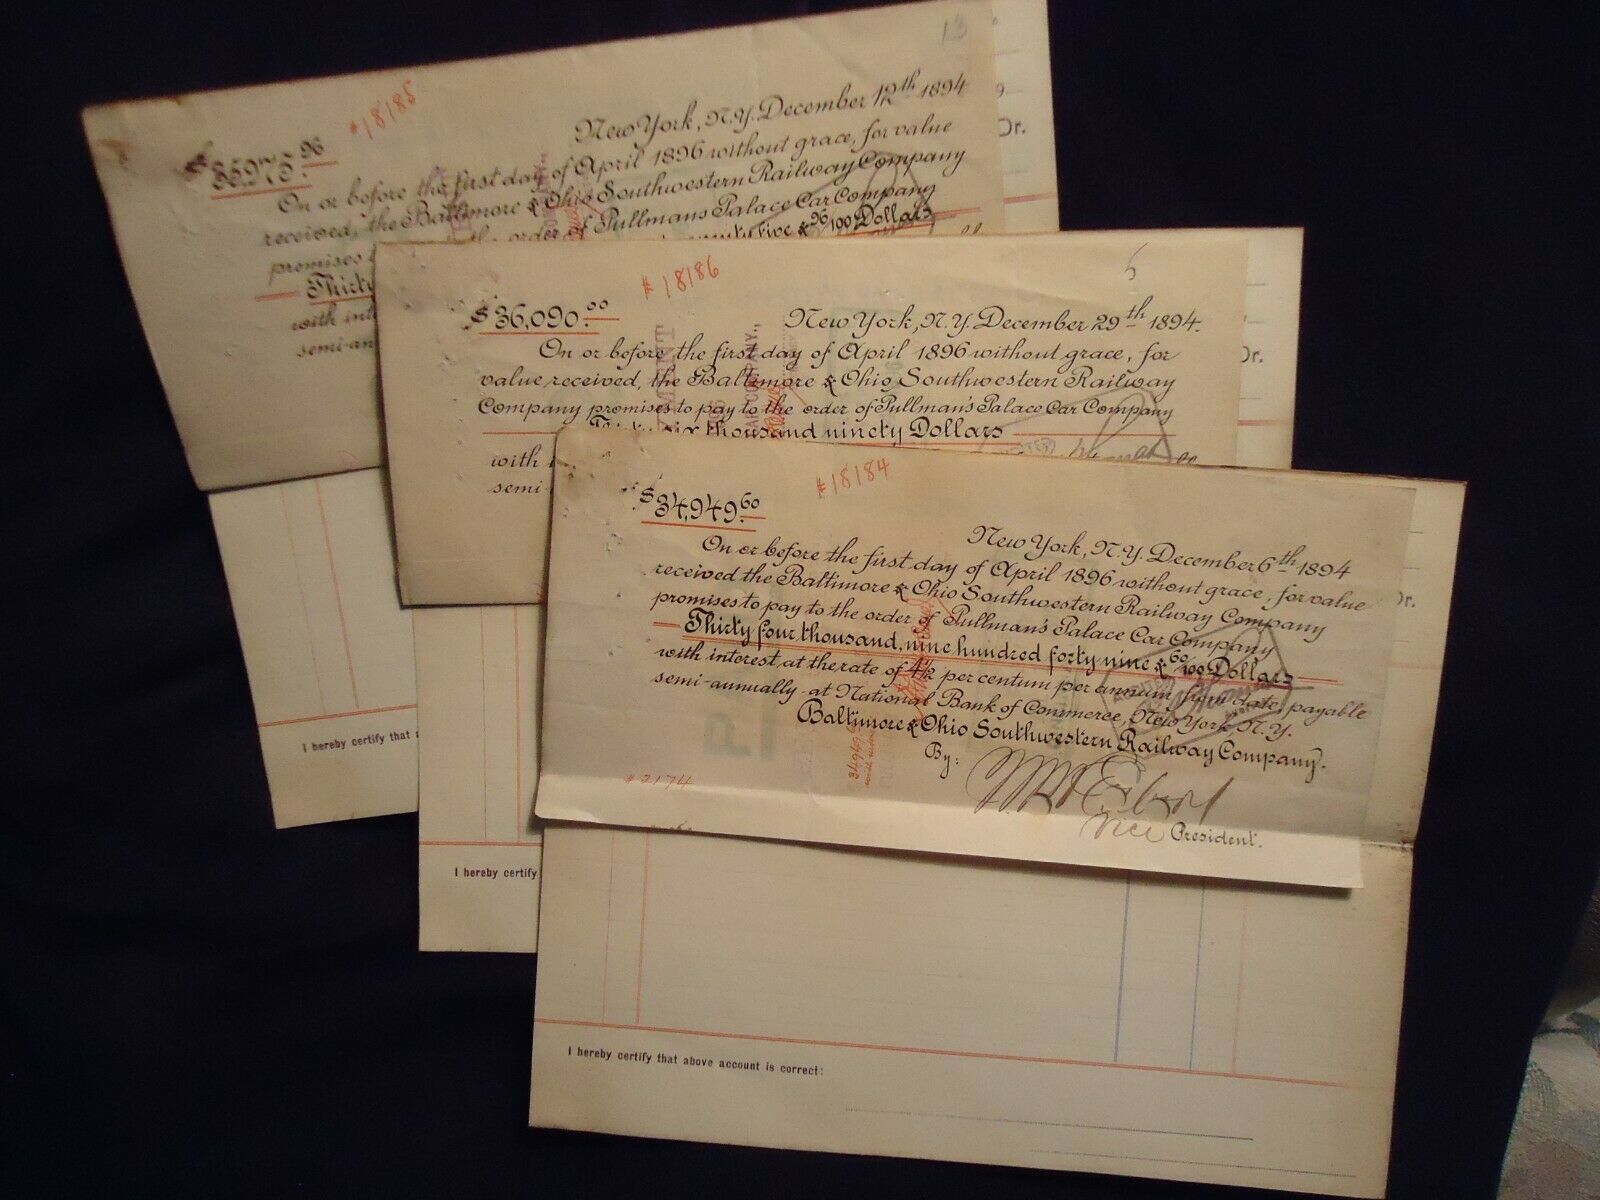 13
#18185
New York, N.Y. December 12th 1894
$35,975.96
On or before the first day of April 1896 without grace, for value
received, the Baltimore & Ohio Southwestern Railway Company
promises the order of Pullman's Palace Car Company
Thirty five & 96/100 Dollars
with int
semi-an
Dr.
I hereby certify that
#18186
$36,090.00
New York, N.Y. December 29th 1894.
On or before the first day of April 1896 without grace, for
value received, the Baltimore & Ohio Southwestern Railway
Company promises to pay to the order of Pullman's Palace Car Company
Thirty six thousand ninety Dollars
with
semi-
Dr.
I hereby certify
#18184
$34,949.60
New York, N.Y. December 6th 1894
On or before the first day of April 1896 without grace, for value
received the Baltimore & Ohio Southwestern Railway Company
promises to pay to the order of Pullman's Palace Car Company
Thirty four thousand, nine hundred forty nine & 60/100 Dollars
with interest, at the rate of 4½ per centum per annum from date, payable
semi-annually at National Bank of Commerce, New York N.Y.
Baltimore & Ohio Southwestern Railway Company.
By:
Vice President.
#2174
Dr.
I hereby certify that above account is correct: